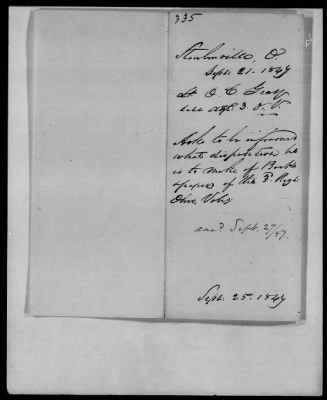 335
Steubenville, O.
Sept. 21. 1847
Lt. O. C. Gray
late 3. O. V.
Asks to be informed
what disposition he
is to make of Books
& papers of the 3d Regt.
Ohio, Vols.
ansd. Sept. 27/47.
Sept. 25. 1847